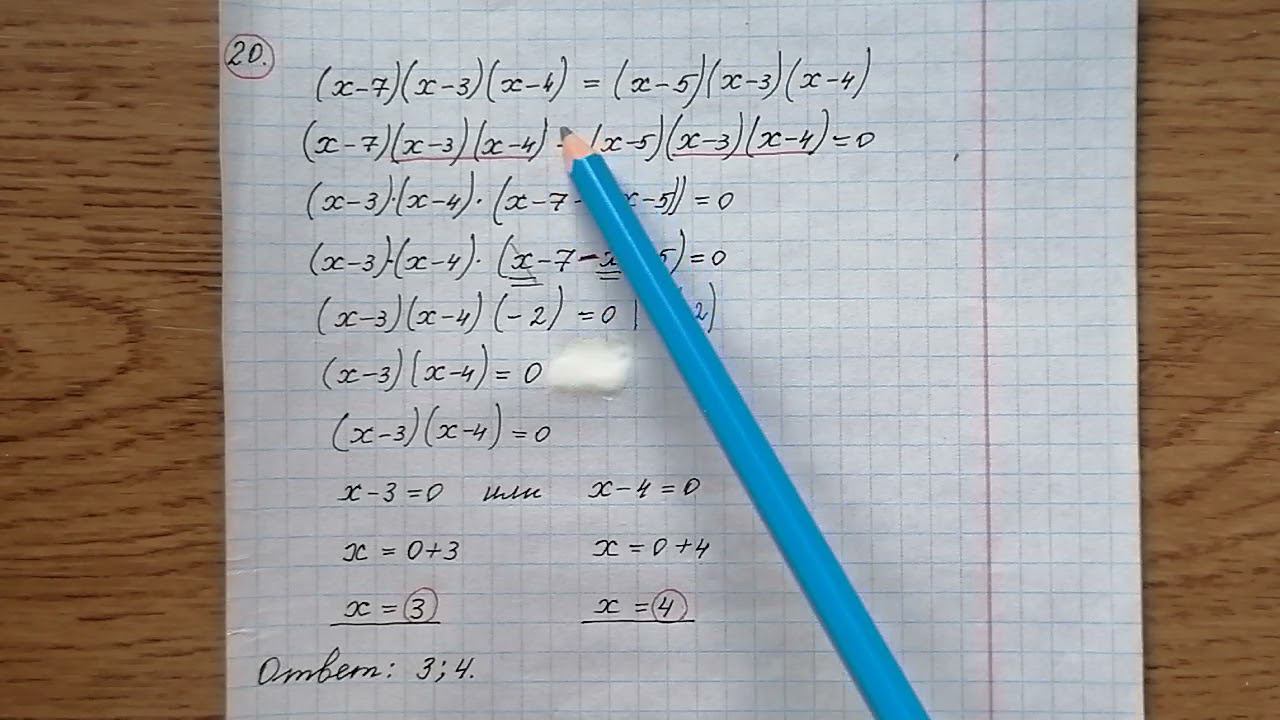 20.
(x-7)(x-3)(x-4) = (x-5)(x-3)(x-4)
(x-7)(x-3)(x-4) - (x-5)(x-3)(x-4)=0
(x-3)·(x-4)·(x-7- x-5))=0
(x-3)·(x-4)·(x-7-x 5)=0
(x-3)(x-4)(-2)=0 | 2)
(x-3)(x-4)=0
(x-3)(x-4)=0
x-3=0 или x-4=0
x=0+3 x=0+4
x=3 x=4
Ответ: 3;4.